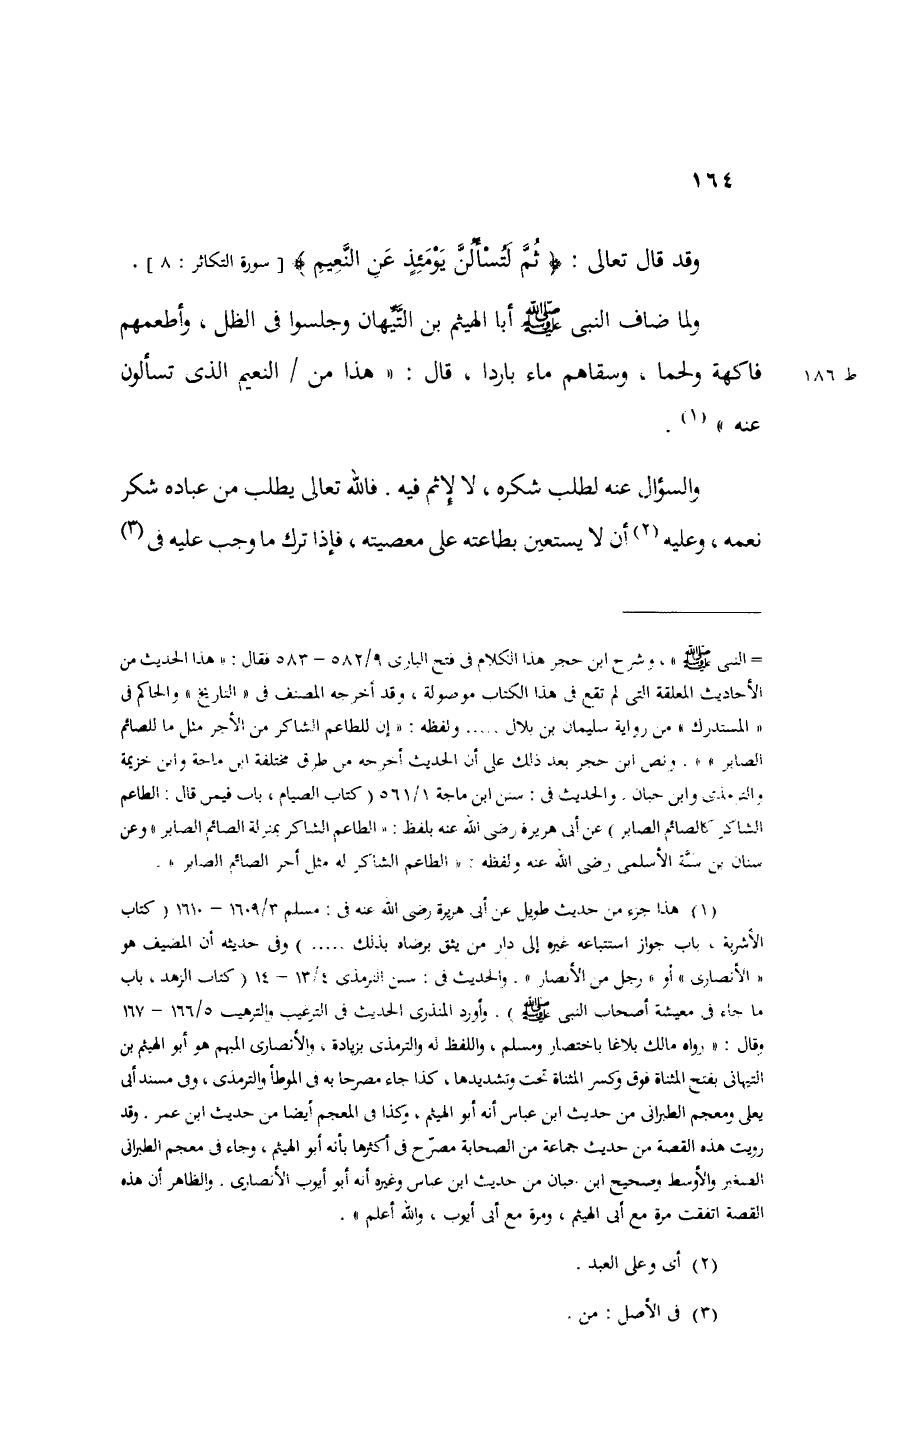 ١٦٤
وقد قال تعالى : ﴿ ثُمَّ لَتُسْأَلُنَّ يَوْمَئِذٍ عَنِ النَّعِيمِ ﴾ [ سورة التكاثر : ٨ ] .
ولما ضاف النبى ﷺ أبا الهيثم بن التَّيِّهان وجلسوا فى الظل ، وأطعمهم
فاكهة ولحما ، وسقاهم ماء باردا ، قال : « هذا من / النعيم الذى تسألون
ط ١٨٦
عنه » (١) .
والسؤال عنه لطلب شكره ، لا لإثم فيه . فالله تعالى يطلب من عباده شكر
نعمه ، وعليه (٢) أن لا يستعين بطاعته على معصيته ، فإذا ترك ما وجب عليه فى (٣)
= النبى ﷺ » ، وشرح ابن حجر هذا الكلام فى فتح البارى ٥٨٢/٩ – ٥٨٣ فقال : « هذا الحديث من
الأحاديث المعلقة التى لم تقع فى هذا الكتاب موصولة ، وقد أخرجه المصنف فى « التاريخ » والحاكم فى
« المستدرك » من رواية سليمان بن بلال ..... ولفظه : « إن للطاعم الشاكر من الأجر مثل ما للصائم
الصابر » » . ونص ابن حجر بعد ذلك على أن الحديث أخرجه من طرق مختلفة ابن ماجة وابن خزيمة
والترمذى وابن حبان . والحديث فى : سنن ابن ماجة ٥٦١/١ ( كتاب الصيام ، باب فيمن قال : الطاعم
الشاكر كالصائم الصابر ) عن أبى هريرة رضى الله عنه بلفظ : « الطاعم الشاكر بمنزلة الصائم الصابر » وعن
سنان بن سَنَّة الأسلمى رضى الله عنه ولفظه : « الطاعم الشاكر له مثل أجر الصائم الصابر » .
(١) هذا جزء من حديث طويل عن أبى هريرة رضى الله عنه فى : مسلم ١٦٠٩/٣ – ١٦١٠ ( كتاب
الأشربة ، باب جواز استتباعه غيره إلى دار من يثق برضاه بذلك ..... ) وفى حديثه أن المضيف هو
« الأنصارى » أو « رجل من الأنصار » . والحديث فى : سنن الترمذى ١٣/٤ – ١٤ ( كتاب الزهد ، باب
ما جاء فى معيشة أصحاب النبى ﷺ ) . وأورد المنذرى الحديث فى الترغيب والترهيب ١٦٦/٥ – ١٦٧
وقال : « رواه مالك بلاغا باختصار ومسلم ، واللفظ له والترمذى بزيادة ، والأنصارى المبهم هو أبو الهيثم بن
التيهانى بفتح المثناة فوق وكسر المثناة تحت وتشديدها ، كذا جاء مصرحا به فى الموطأ والترمذى ، وفى مسند أبى
يعلى ومعجم الطبرانى من حديث ابن عباس أنه أبو الهيثم ، وكذا فى المعجم أيضا من حديث ابن عمر . وقد
رويت هذه القصة من حديث جماعة من الصحابة مصرّح فى أكثرها بأنه أبو الهيثم ، وجاء فى معجم الطبرانى
الصغير والأوسط وصحيح ابن حبان من حديث ابن عباس وغيره أنه أبو أيوب الأنصارى . والظاهر أن هذه
القصة اتفقت مرة مع أبى الهيثم ، ومرة مع أبى أيوب ، والله أعلم » .
(٢) أى وعلى العبد .
(٣) فى الأصل : من .